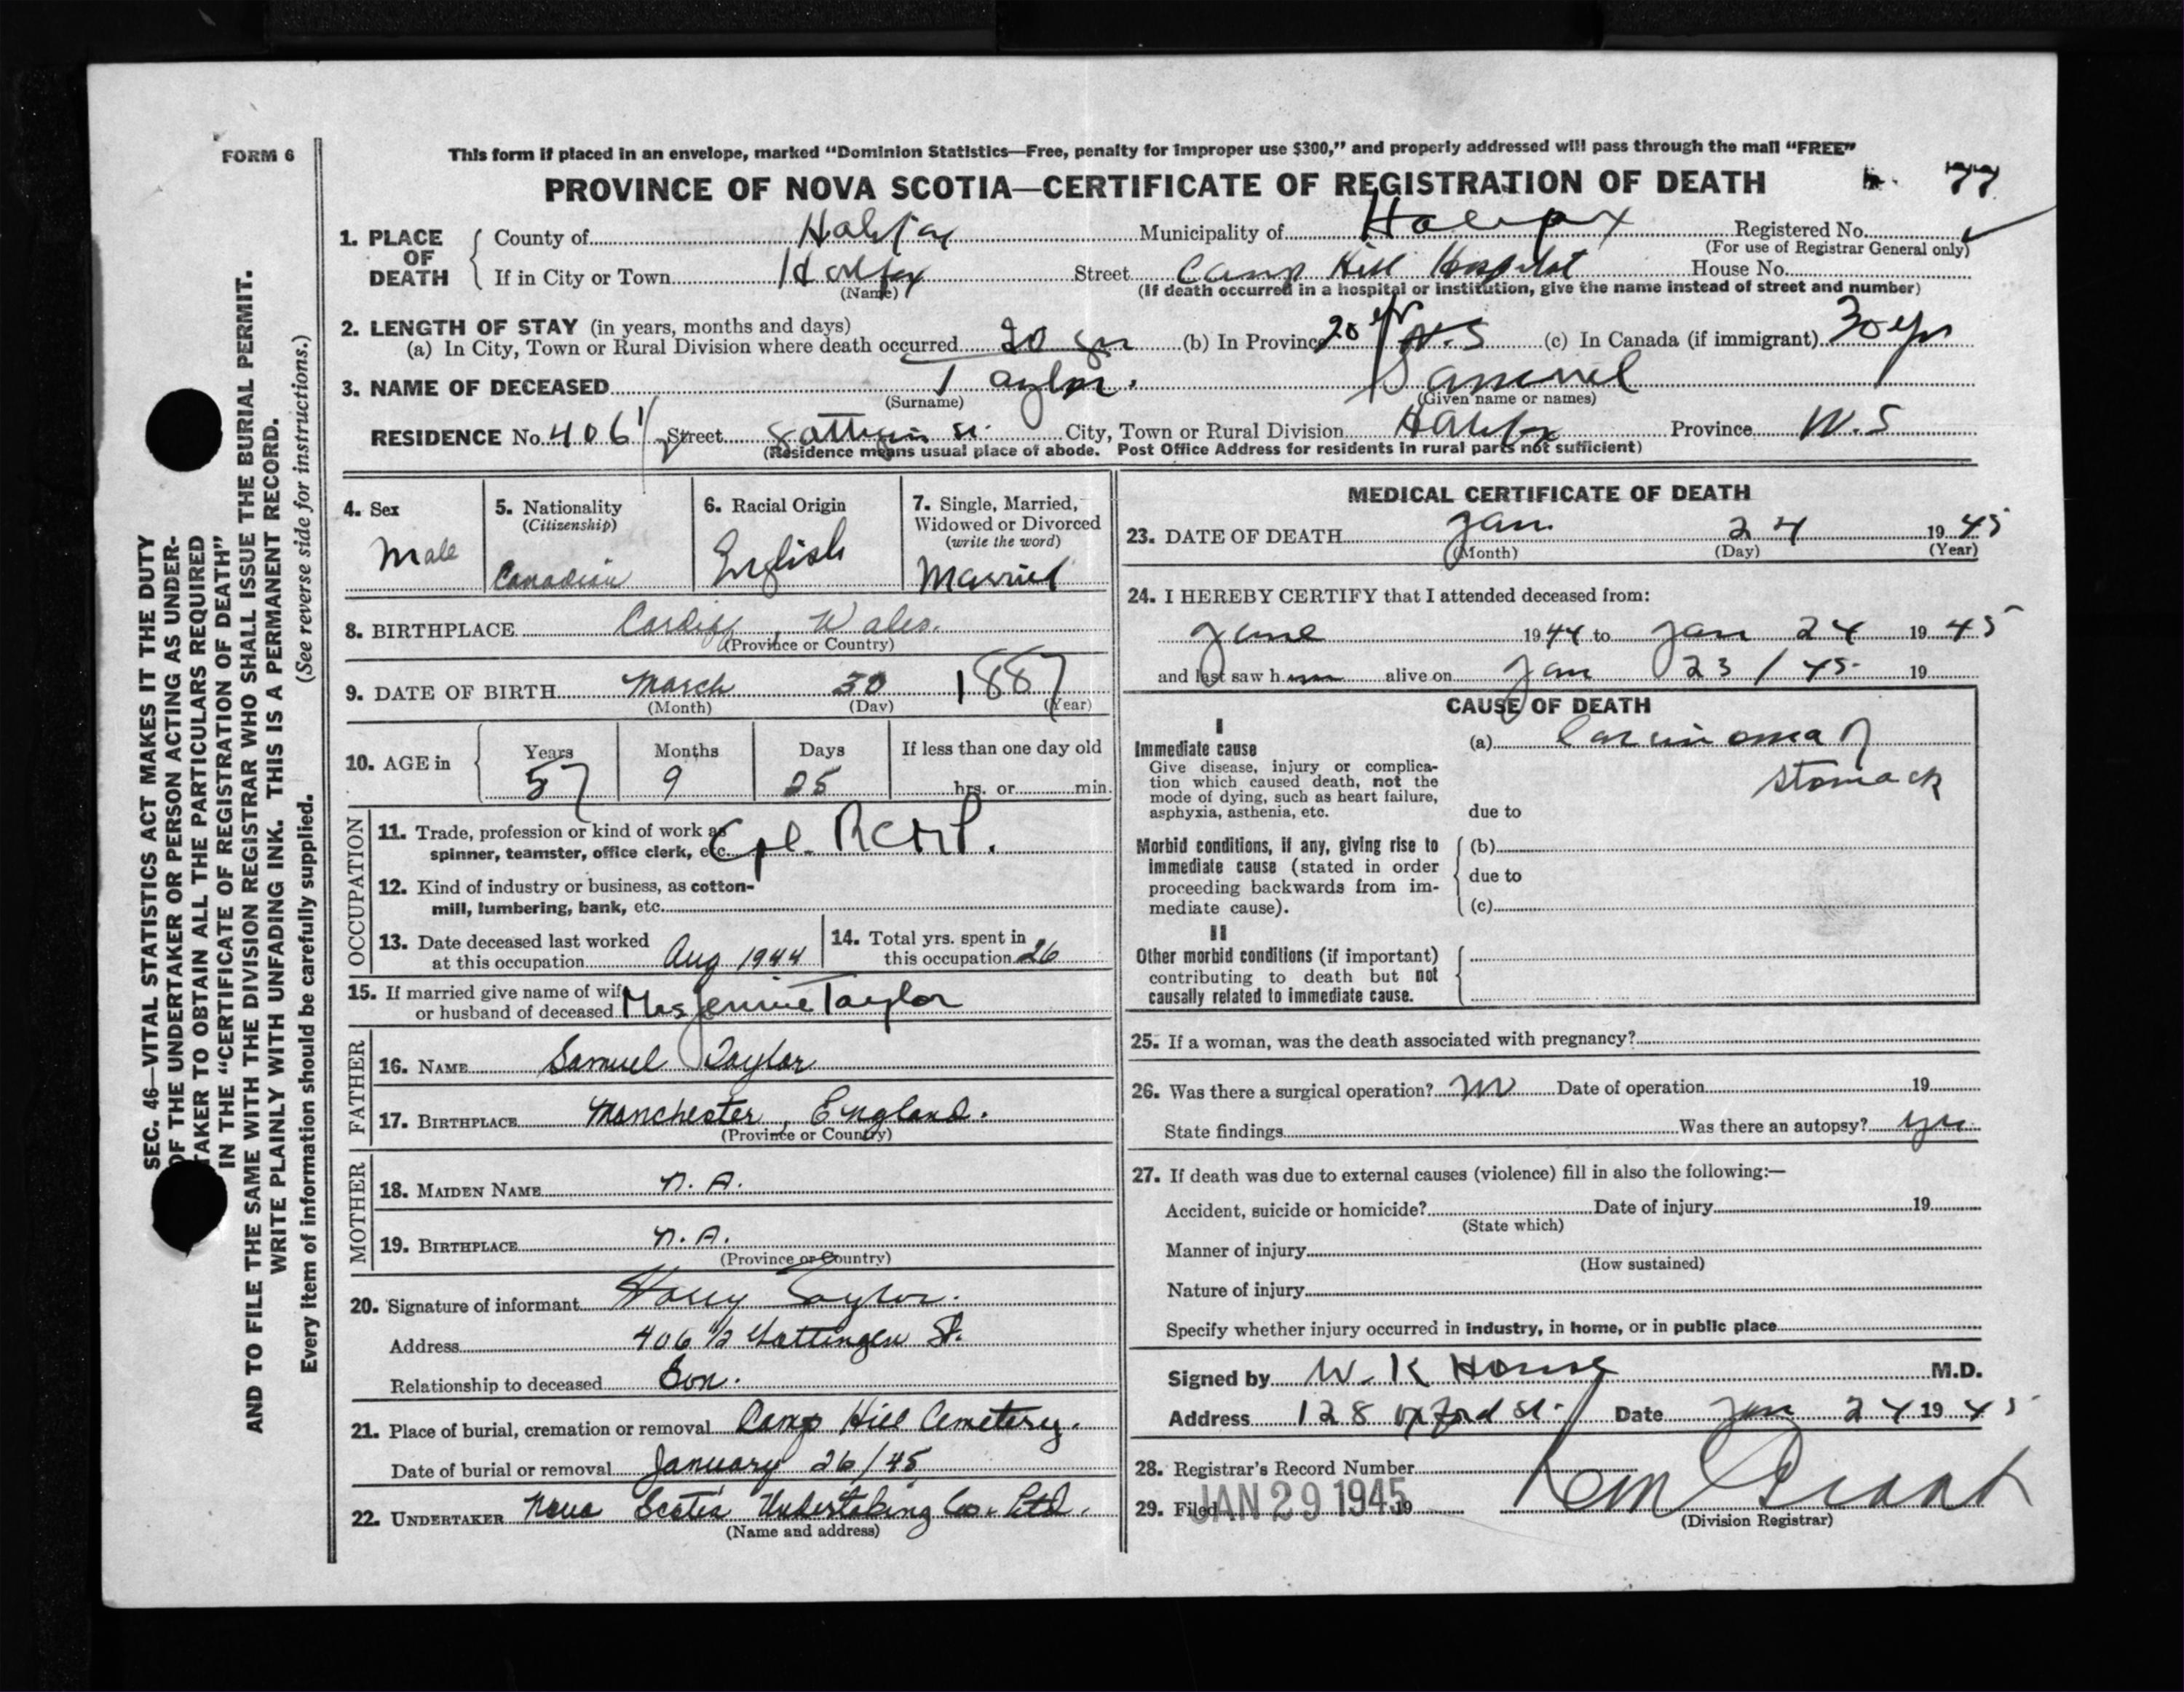 FORM 6
This form if placed in an envelope, marked "Dominion Statistics—Free, penalty for improper use $300," and properly addressed will pass through the mail "FREE"
PROVINCE OF NOVA SCOTIA—CERTIFICATE OF REGISTRATION OF DEATH 77
1. PLACE OF DEATH
County of Halifax Municipality of Halifax Registered No.
(For use of Registrar General only)
If in City or Town Halifax Street Camp Hill Hospital House No.
(Name) (If death occurred in a hospital or institution, give the name instead of street and number)
2. LENGTH OF STAY (in years, months and days)
(a) In City, Town or Rural Division where death occurred 20 yrs (b) In Province 20 yr N.S (c) In Canada (if immigrant) 30 yrs
3. NAME OF DECEASED Taylor. Samuel
(Surname) (Given name or names)
RESIDENCE No. 406 1/2 Street Gottigin St. City, Town or Rural Division Halifax Province N.S
(Residence means usual place of abode. Post Office Address for residents in rural parts not sufficient)
4. Sex
Male
5. Nationality
(Citizenship)
Canadian
6. Racial Origin
English
7. Single, Married,
Widowed or Divorced
(write the word)
Married
8. BIRTHPLACE Cardiff, Wales.
(Province or Country)
9. DATE OF BIRTH March 30 1887
(Month) (Day) (Year)
10. AGE in
Years Months Days If less than one day old
57 9 25 hrs. or min.
OCCUPATION
11. Trade, profession or kind of work as
spinner, teamster, office clerk, etc. Cpl. RCMP.
12. Kind of industry or business, as cotton-
mill, lumbering, bank, etc.
13. Date deceased last worked
at this occupation Aug 1944
14. Total yrs. spent in
this occupation 26
15. If married give name of wife
or husband of deceased Mrs Jennie Taylor
FATHER
16. NAME Samuel Taylor
17. BIRTHPLACE Manchester, England.
(Province or Country)
MOTHER
18. MAIDEN NAME N. A.
19. BIRTHPLACE N. A.
(Province or Country)
20. Signature of informant Harry Taylor.
Address 406 1/2 Gottingen St.
Relationship to deceased Son.
21. Place of burial, cremation or removal Camp Hill Cemetery.
Date of burial or removal January 26/45
22. UNDERTAKER Nova Scotia Undertaking Co. Ltd.
(Name and address)
MEDICAL CERTIFICATE OF DEATH
23. DATE OF DEATH Jan. 24 1945
(Month) (Day) (Year)
24. I HEREBY CERTIFY that I attended deceased from:
June 1944 to Jan 24 1945
and last saw him alive on Jan 23/45 19
CAUSE OF DEATH
I
Immediate cause
Give disease, injury or complica-
tion which caused death, not the
mode of dying, such as heart failure,
asphyxia, asthenia, etc.
(a) Carcinoma of
stomack
due to
Morbid conditions, if any, giving rise to
immediate cause (stated in order
proceeding backwards from im-
mediate cause).
(b)
due to
(c)
II
Other morbid conditions (if important)
contributing to death but not
causally related to immediate cause.
25. If a woman, was the death associated with pregnancy?
26. Was there a surgical operation? no Date of operation 19
State findings Was there an autopsy? yes
27. If death was due to external causes (violence) fill in also the following:—
Accident, suicide or homicide? Date of injury 19
(State which)
Manner of injury
(How sustained)
Nature of injury
Specify whether injury occurred in industry, in home, or in public place
Signed by W. K House M.D.
Address 128 Oxford St. Date Jan 24 1945
28. Registrar's Record Number
29. Filed JAN 29 1945 19
(Division Registrar)
SEC. 46—VITAL STATISTICS ACT MAKES IT THE DUTY
OF THE UNDERTAKER OR PERSON ACTING AS UNDER-
TAKER TO OBTAIN ALL THE PARTICULARS REQUIRED
IN THE "CERTIFICATE OF REGISTRATION OF DEATH"
AND TO FILE THE SAME WITH THE DIVISION REGISTRAR WHO SHALL ISSUE THE BURIAL PERMIT.
WRITE PLAINLY WITH UNFADING INK. THIS IS A PERMANENT RECORD.
Every item of information should be carefully supplied. (See reverse side for instructions.)